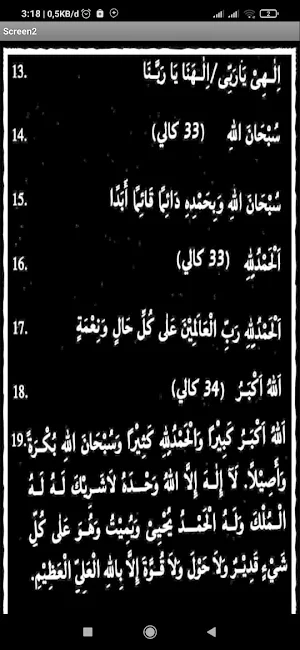 3:18 | 0,5KB/d
Screen2
13. اِلٰهِىْ يَارَبِّى/اِلٰهَنَا يَا رَبَّنَا
14. سُبْحَانَ اللهِ (33 كالي)
15. سُبْحَانَ اللهِ وَبِحَمْدِهِ دَائِمًا قَائِمًا أَبَدًا
16. اَلْحَمْدُلِلّٰهِ (33 كالي)
17. اَلْحَمْدُلِلّٰهِ رَبِّ الْعَالَمِيْنَ عَلَى كُلِّ حَالٍ وَنِعْمَةٍ
18. اَللهُ اَكْبَرُ (34 كالي)
19. اَللهُ اَكْبَرُ كَبِيْرًا وَالْحَمْدُلِلّٰهِ كَثِيْرًا وَسُبْحَانَ اللهِ بُكْرَةً
وَأَصِيْلًا. لَآ اِلٰهَ اِلَّا اللهُ وَحْدَهُ لَاشَرِيْكَ لَهُ لَهُ
الْمُلْكُ وَلَهُ الْحَمْدُ يُحْيِىْ وَيُمِيْتُ وَهُوَ عَلَى كُلِّ
شَيْءٍ قَدِيْرٌ وَلَا حَوْلَ وَلَا قُوَّةَ اِلَّا بِاللهِ الْعَلِيِّ الْعَظِيْمِ.